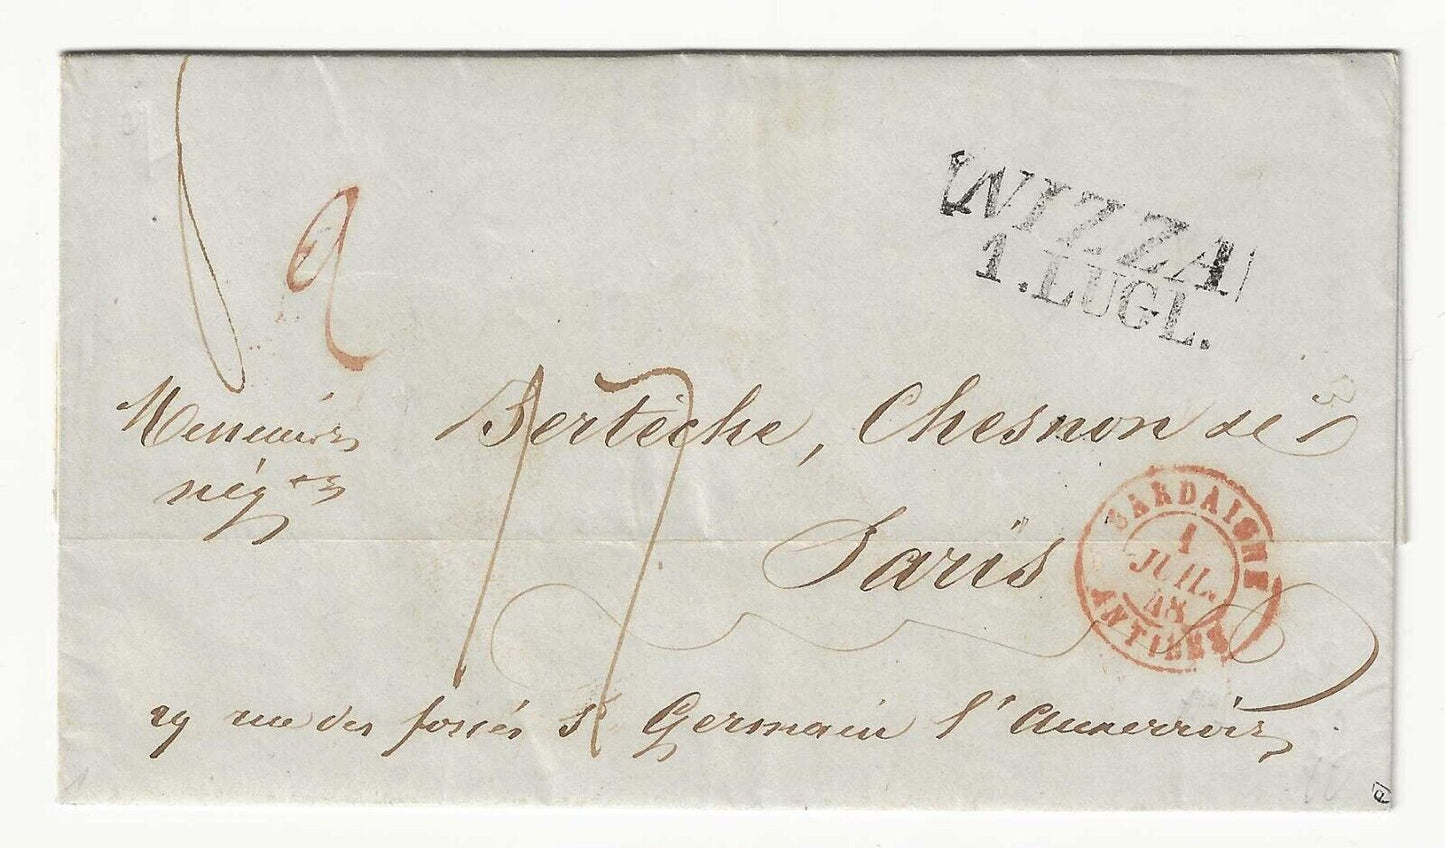 NIZZA
1. LUGL.
2
Messieurs Berteche, Chesnon de
nég.ts
Paris
SARDAIGNE
1
JUIL.
48
ANTIBES
17
29 rue des fossés St Germain l'Auxerrois